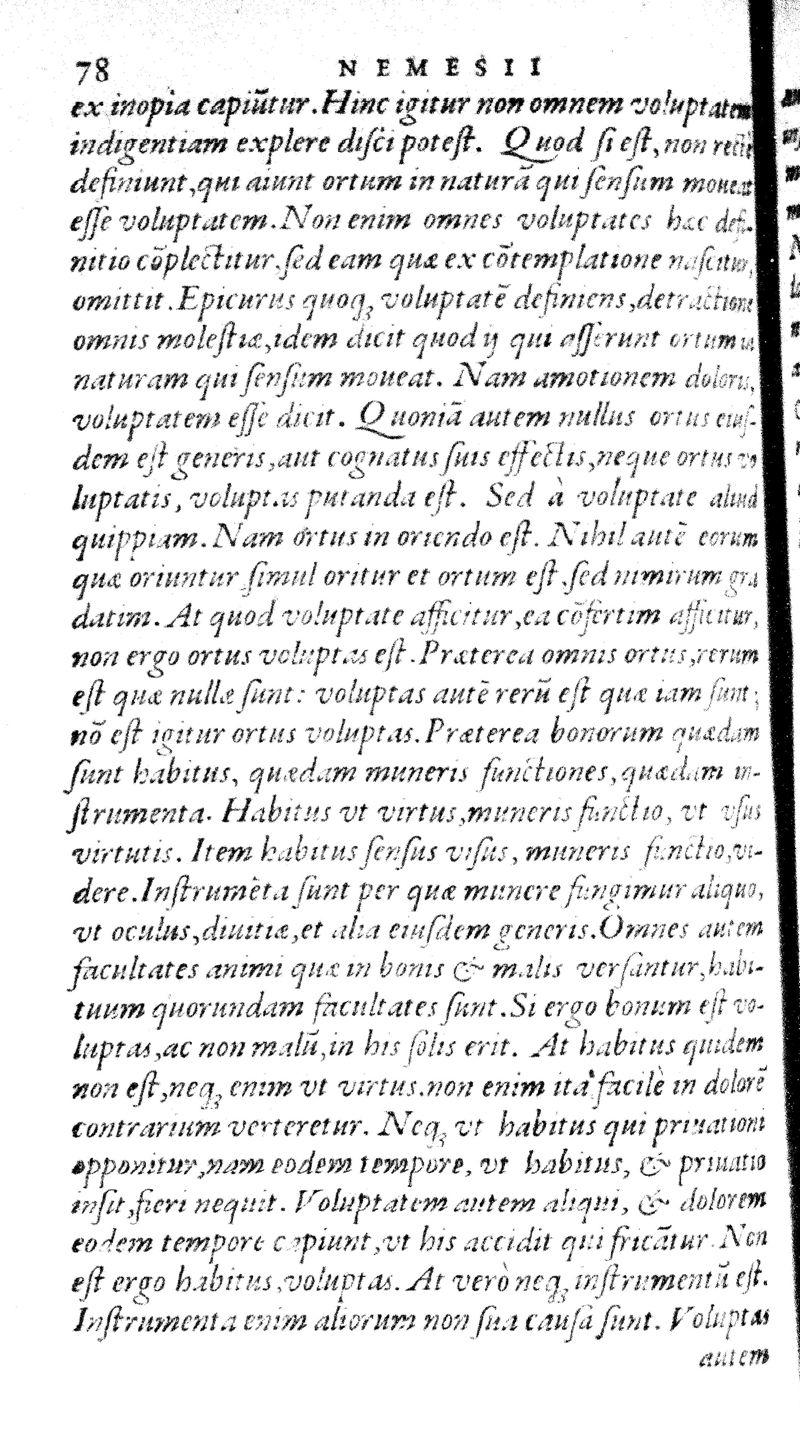 78 NEMESII
ex inopia capiũtur. Hinc igitur non omnem voluptatem
indigentiam explere disci potest. Quod si est, non rectè
definiunt, qui aiunt ortum in naturã qui sensum moueat
esse voluptatem. Non enim omnes voluptates hæc defi-
nitio cõplectitur, sed eam quæ ex cõtemplatione nascitur,
omittit. Epicurus quoq; voluptatẽ definiens, detractione
omnis molestiæ, idem dicit quod ij qui asserunt ortum in
naturam qui sensum moueat. Nam amotionem doloris,
voluptatem esse dicit. Quoniã autem nullus ortus eius-
dem est generis, aut cognatus suis effectis, neque ortus vo
luptatis, voluptas putanda est. Sed à voluptate aliud
quippiam. Nam ortus in oriendo est. Nihil autẽ eorum
quæ oriuntur simul oritur et ortum est, sed nimirum gra
datim. At quod voluptate afficitur, ea cõfertim afficitur,
non ergo ortus voluptas est. Præterea omnis ortus, rerum
est quæ nullæ sunt: voluptas autẽ rerũ est quæ iam sunt;
nõ est igitur ortus voluptas. Præterea bonorum quædam
sunt habitus, quædam muneris functiones, quædam in-
strumenta. Habitus vt virtus, muneris functio, vt vsus
virtutis. Item habitus sensus visus, muneris functio, vi-
dere. Instrumẽta sunt per quæ munere fungimur aliquo,
vt oculus, diuitiæ, et alia eiusdem generis. Omnes autem
facultates animi quæ in bonis & malis versantur, habi-
tuum quorundam facultates sunt. Si ergo bonum est vo-
luptas, ac non malũ, in his solis erit. At habitus quidem
non est, neq; enim vt virtus. non enim ita facilè in dolorẽ
contrarium verteretur. Neq; vt habitus qui priuationi
opponitur, nam eodem tempore, vt habitus, & priuatio
insit, fieri nequit. Voluptatem autem aliqui, & dolorem
eodem tempore capiunt, vt his accidit qui fricãtur. Non
est ergo habitus, voluptas. At verò neq; instrumentũ est.
Instrumenta enim aliorum non sua causa sunt. Voluptas
autem